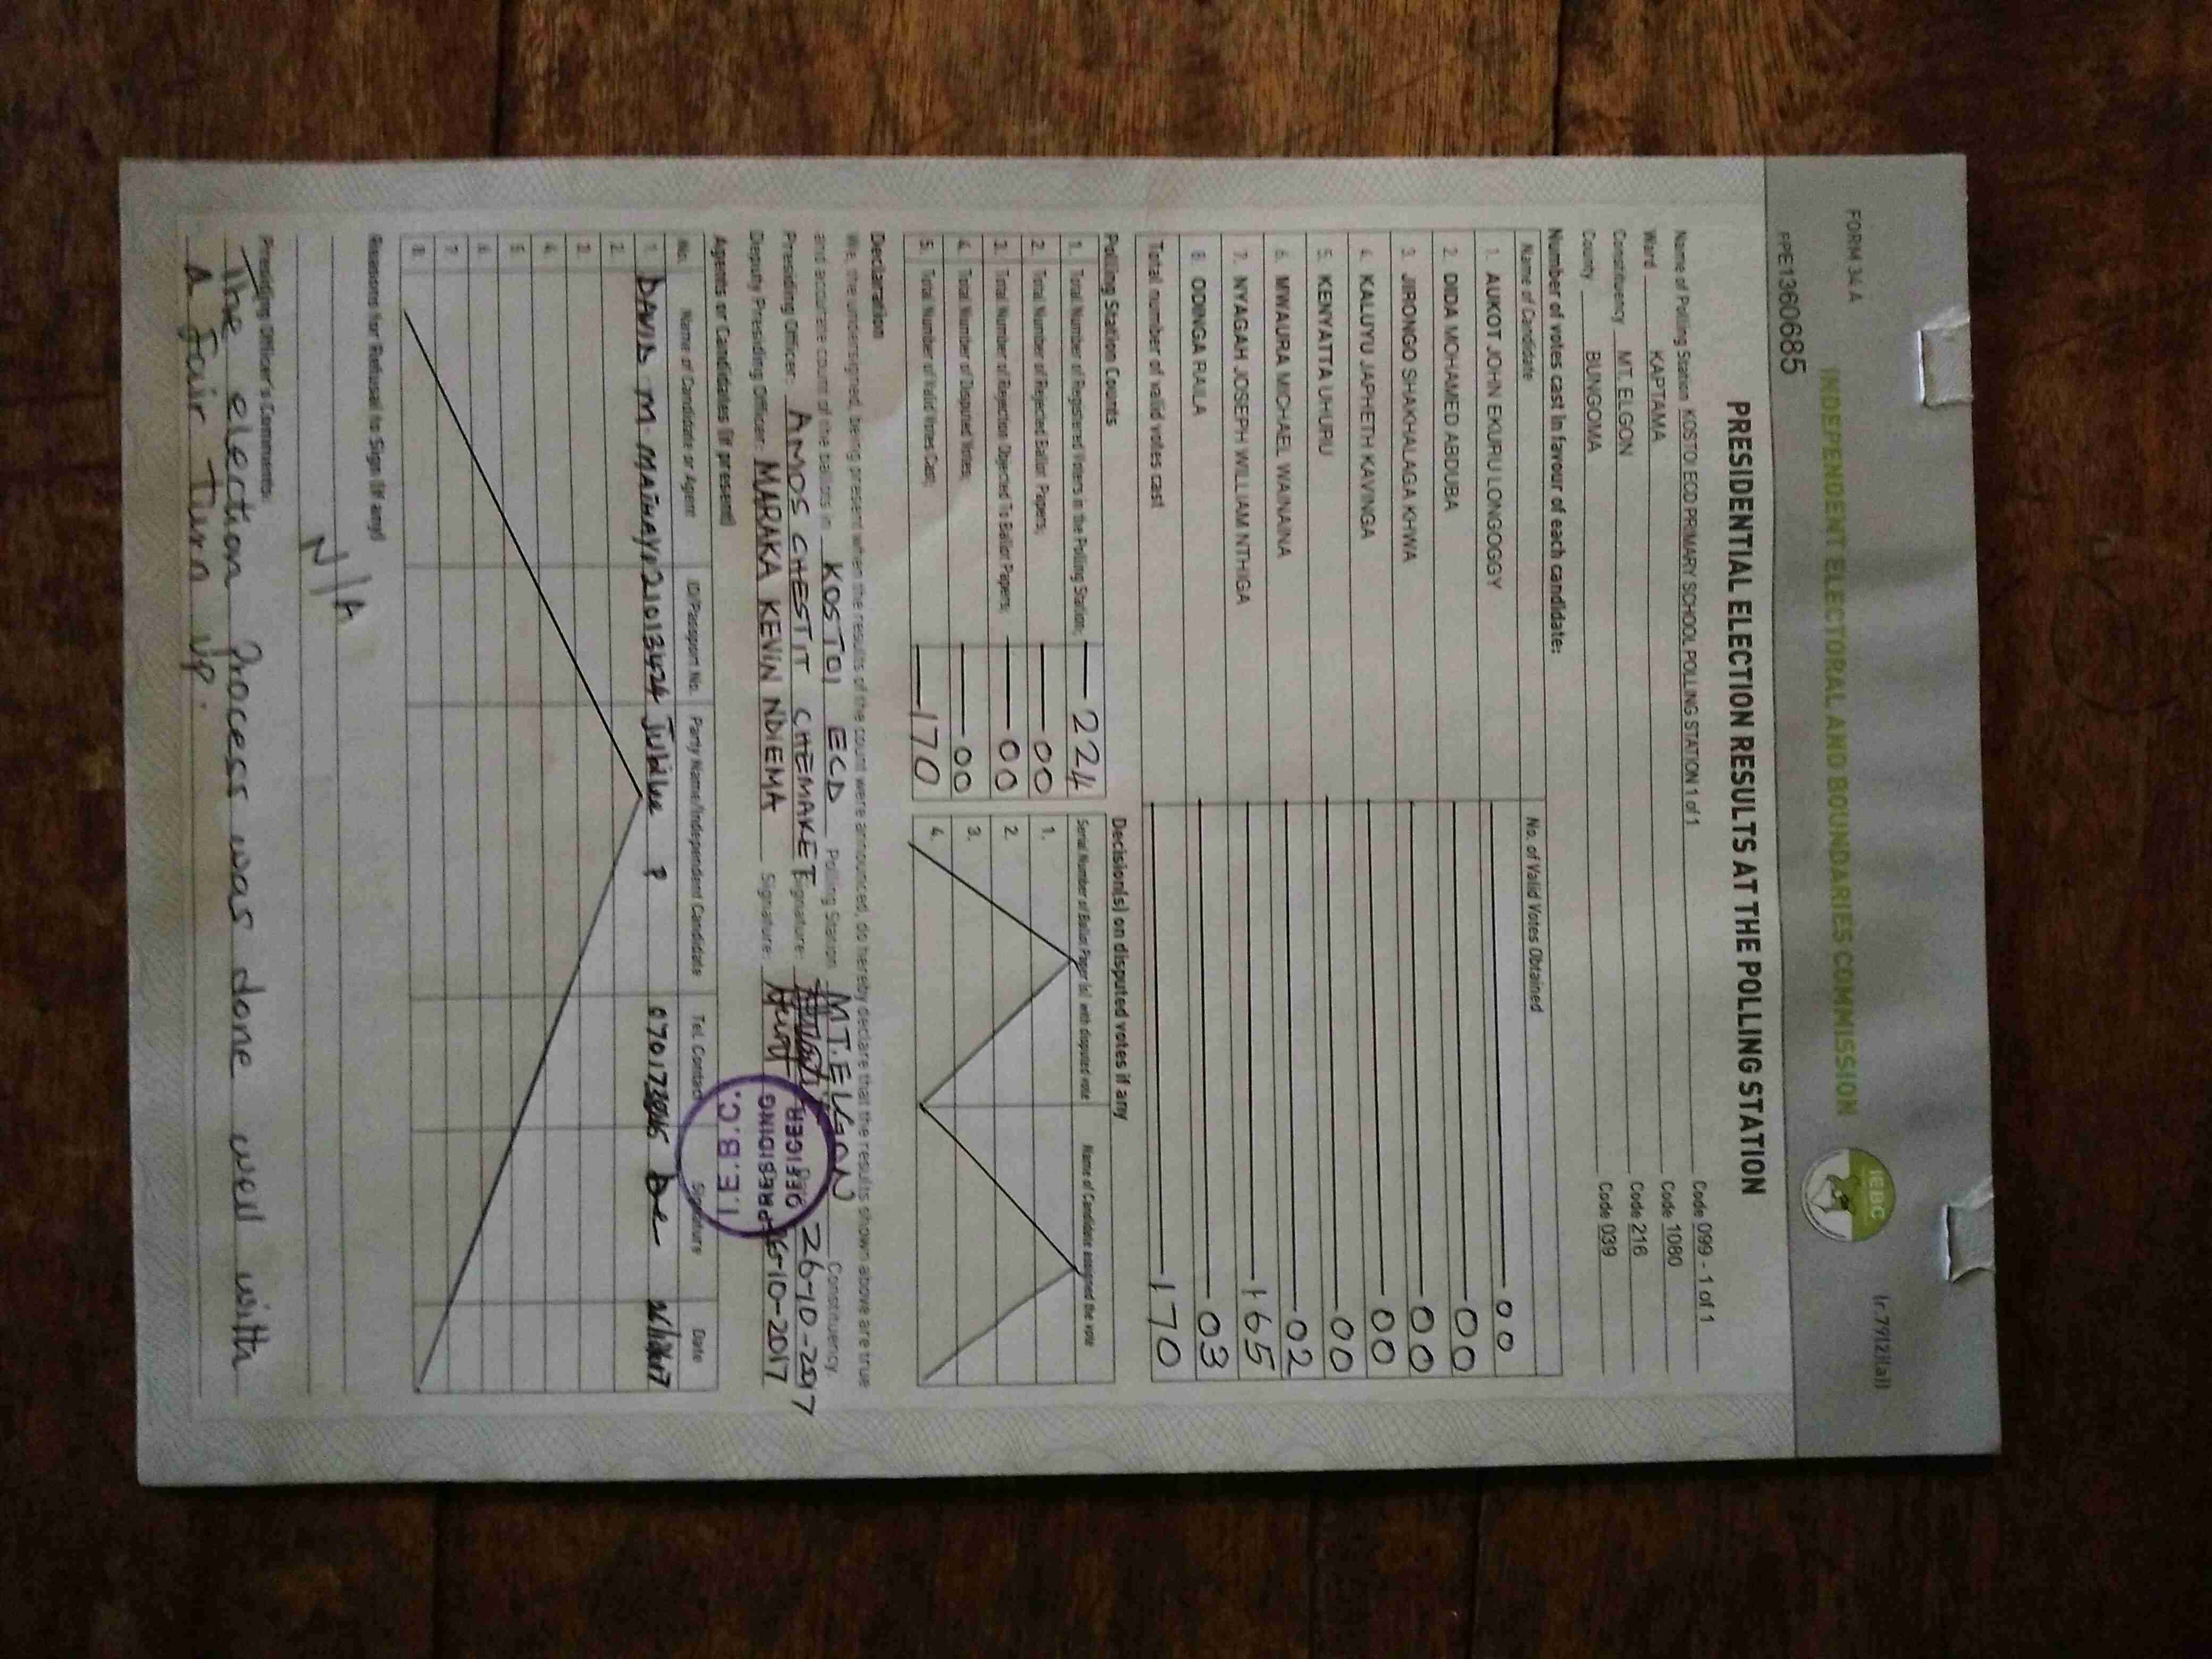 FORM 34 A
INDEPENDENT ELECTORAL AND BOUNDARIES COMMISSION
IEBC
(r.79(2)(a))
PPE1360685
PRESIDENTIAL ELECTION RESULTS AT THE POLLING STATION
Name of Polling Station KOSTOI ECD PRIMARY SCHOOL POLLING STATION 1 of 1 Code 099 - 1 of 1
Ward KAPTAMA Code 1080
Constituency MT. ELGON Code 216
County BUNGOMA Code 039
Number of votes cast in favour of each candidate:
Name of Candidate No. of Valid Votes Obtained
1. AUKOT JOHN EKURU LONGOGGY 00
2. DIDA MOHAMED ABDUBA 00
3. JIRONGO SHAKHALAGA KHWA 00
4. KALUYU JAPHETH KAVINGA 00
5. KENYATTA UHURU 00
6. MWAURA MICHAEL WAINAINA 02
7. NYAGAH JOSEPH WILLIAM NTHIGA 165
8. ODINGA RAILA 03
Total number of valid votes cast 170
Polling Station Counts
1. Total Number of Registered Voters in the Polling Station; 224
2. Total Number of Rejected Ballot Papers; 00
3. Total Number of Rejection Objected To Ballot Papers; 00
4. Total Number of Disputed Votes; 00
5. Total Number of Valid Votes Cast; 170
Decision(s) on disputed votes if any
Serial Number of Ballot Paper (s) with disputed vote Name of Candidate assigned the vote
1.
2.
3.
4.
Declaration
We, the undersigned, being present when the results of the count were announced, do hereby declare that the results shown above are true
and accurate count of the ballots in KOSTOI ECD Polling Station MT. ELGON Constituency.
Presiding Officer: AMOS CHESTIT CHEMAKET Signature: 26-10-2017
Deputy Presiding Officer: MARAKA KEVIN NDIEMA Signature: 6-10-2017
I.E.B.C.
PRESIDING
OFFICER
Agents or Candidates (if present)
No. Name of Candidate or Agent ID/Passport No. Party Name/Independent Candidate Tel. Contact Signature Date
1. DAVID M. 21013424 Jubilee P
2.
3.
4.
5.
6.
7.
8.
Reasons for Refusal to Sign (if any)
N/A
Presiding Officer's Comments:
The election Process was done well with
a fair Turn up.